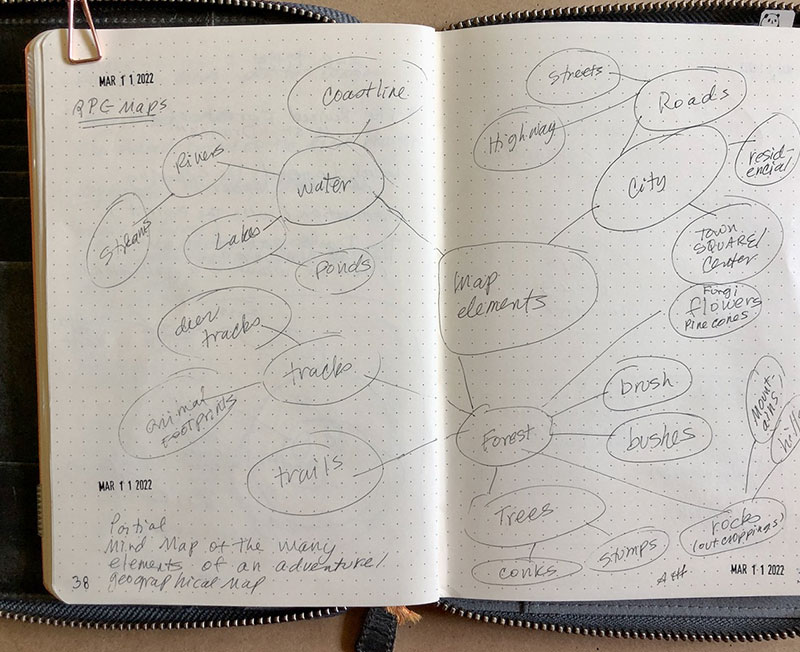 MAR 11 2022
RPG Maps
Coastline
Rivers
water
Streams
Lakes
Ponds
deer
tracks
tracks
animal
Footprints
trails
MAR 11 2022
Partial
Mind Map of the many
elements of an adventure/
geographical map
38
Streets
Roads
Highway
City
resid-
encial
Town
SQUARE/
Center
Map
elements
Fungi
flowers
Pinecones
brush
Forest
bushes
Mount-
ains/
hills
Trees
rocks
(outcroppings)
Stumps
conks
MAR 11 2022